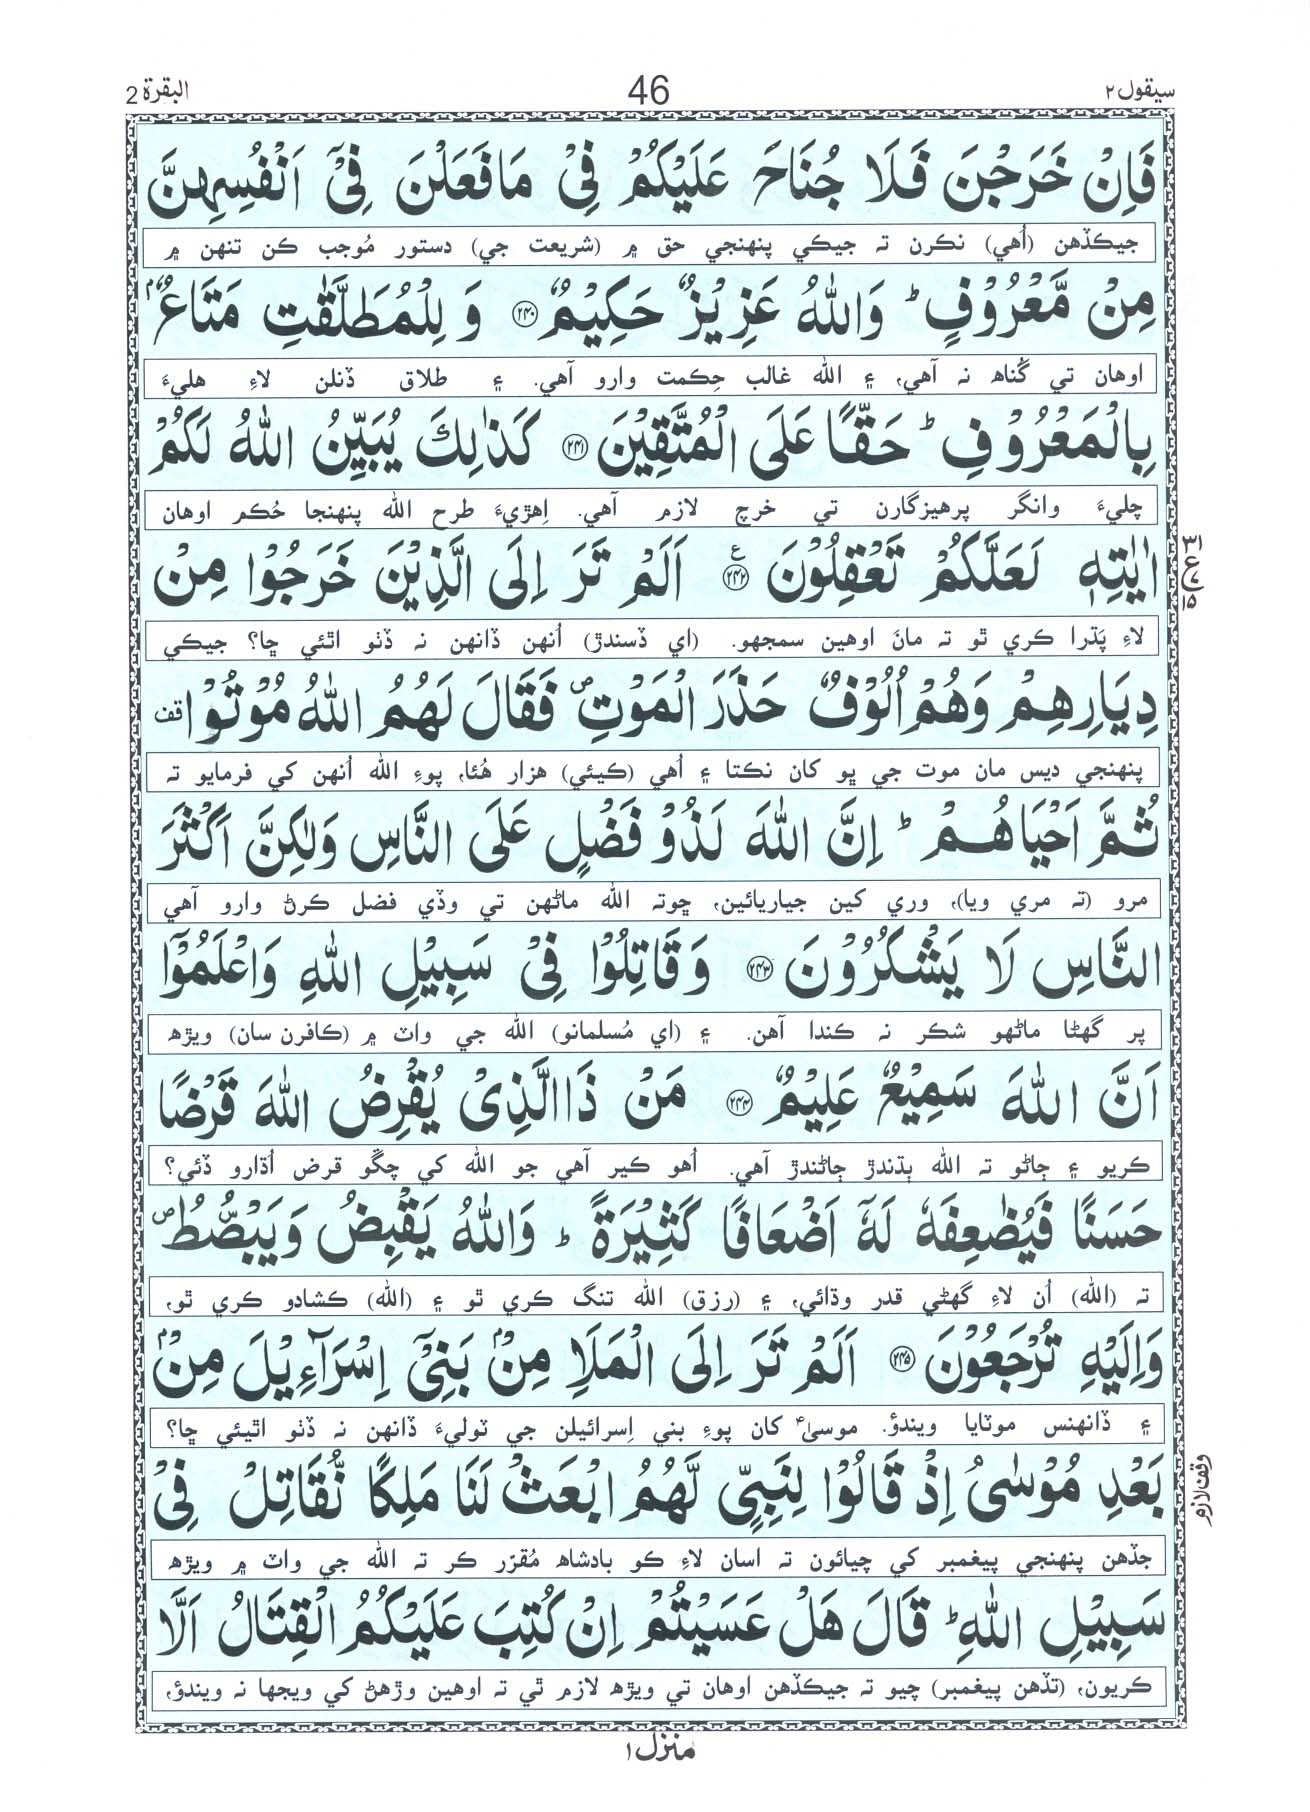 سيقول ٢
46
البقرة 2
فَاِنْ خَرَجْنَ فَلَا جُنَاحَ عَلَيْكُمْ فِيْ مَا فَعَلْنَ فِيْٓ اَنْفُسِهِنَّ
جيڪڏهن (اُهي) نڪرن تہ جيڪي پنهنجي حق ۾ (شريعت جي) دستور مُوجب ڪن تنهن ۾
مِنْ مَّعْرُوْفٍ ؕ وَاللّٰهُ عَزِيْزٌ حَكِيْمٌ ﴿۲۴۰﴾ وَ لِلْمُطَلَّقٰتِ مَتَاعٌۢ
اوهان تي گُناھ نہ آهي، ۽ الله غالب حِڪمت وارو آهي. ۽ طلاق ڏنلن لاءِ هليءَ
بِالْمَعْرُوْفِ ؕ حَقًّا عَلَى الْمُتَّقِيْنَ ﴿۲۴۱﴾ كَذٰلِكَ يُبَيِّنُ اللّٰهُ لَكُمْ
چليءَ وانگر پرهيزگارن تي خرچ لازم آهي. اِهڙيءَ طرح الله پنهنجا حُڪم اوهان
اٰيٰتِهٖ لَعَلَّكُمْ تَعْقِلُوْنَ ﴿۲۴۲﴾ ع اَلَمْ تَرَ اِلَى الَّذِيْنَ خَرَجُوْا مِنْ
٣١ ع ١٥
لاءِ پَڌرا ڪري ٿو تہ مانَ اوهين سمجهو. (اي ڏسندڙ) اُنهن ڏانهن نہ ڏٺو اٿئي ڇا؟ جيڪي
دِيَارِهِمْ وَهُمْ اُلُوْفٌ حَذَرَ الْمَوْتِ ۪ فَقَالَ لَهُمُ اللّٰهُ مُوْتُوْا قف
پنهنجي ديس مان موت جي ڀو کان نڪتا ۽ اُهي (ڪيئي) هزار هُئا، پوءِ الله اُنهن کي فرمايو تہ
ثُمَّ اَحْيَاهُمْ ؕ اِنَّ اللّٰهَ لَذُوْ فَضْلٍ عَلَى النَّاسِ وَلٰكِنَّ اَكْثَرَ
مرو (تہ مري ويا)، وري کين جياريائين، ڇوتہ الله ماڻهن تي وڏي فضل ڪرڻ وارو آهي
النَّاسِ لَا يَشْكُرُوْنَ ﴿۲۴۳﴾ وَقَاتِلُوْا فِيْ سَبِيْلِ اللّٰهِ وَاعْلَمُوْٓا
پر گهڻا ماڻهو شڪر نہ ڪندا آهن. ۽ (اي مُسلمانو) الله جي واٽ ۾ (ڪافرن سان) ويڙھ
اَنَّ اللّٰهَ سَمِيْعٌ عَلِيْمٌ ﴿۲۴۴﴾ مَنْ ذَا الَّذِىْ يُقْرِضُ اللّٰهَ قَرْضًا
ڪريو ۽ ڄاڻو تہ الله ٻڌندڙ ڄاڻندڙ آهي. اُهو ڪير آهي جو الله کي چڱو قرض اُڌارو ڏئي؟
حَسَنًا فَيُضٰعِفَهٗ لَهٗٓ اَضْعَافًا كَثِيْرَةً ؕ وَاللّٰهُ يَقْبِضُ وَيَبْصُۜطُ ۪
تہ (الله) اُن لاءِ گهڻي قدر وڌائي، ۽ (رزق) الله تنگ ڪري ٿو ۽ (الله) ڪشادو ڪري ٿو،
وَاِلَيْهِ تُرْجَعُوْنَ ﴿۲۴۵﴾ اَلَمْ تَرَ اِلَى الْمَلَاِ مِنْۢ بَنِيْٓ اِسْرَآءِيْلَ مِنْۢ
۽ ڏانهنس موٽايا ويندؤ. موسىٰؑ کان پوءِ بني اِسرائيلن جي ٽوليءَ ڏانهن نہ ڏٺو اٿيئي ڇا؟
بَعْدِ مُوْسٰىۘ اِذْ قَالُوْا لِنَبِيٍّ لَّهُمُ ابْعَثْ لَنَا مَلِكًا نُّقَاتِلْ فِيْ
وقف لازم
جڏهن پنهنجي پيغمبر کي چيائون تہ اسان لاءِ ڪو بادشاھ مُقرّر ڪر تہ الله جي واٽ ۾ ويڙھ
سَبِيْلِ اللّٰهِ ؕ قَالَ هَلْ عَسَيْتُمْ اِنْ كُتِبَ عَلَيْكُمُ الْقِتَالُ اَلَّا
ڪريون، (تڏهن پيغمبر) چيو تہ جيڪڏهن اوهان تي ويڙھ لازم ٿي تہ اوهين وڙهڻ کي ويجها نہ ويندؤ،
منزل ١